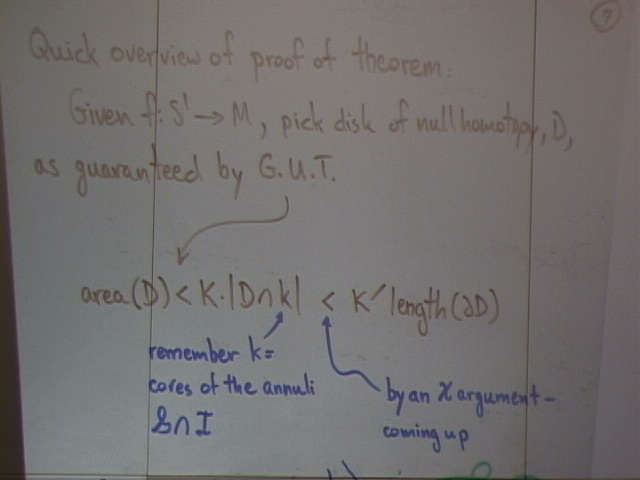 7
Quick overview of proof of theorem:
Given f: S¹ → M, pick disk of nullhomotopy, D,
as guaranteed by G.U.T.
area(D) < K·|D∩k| < K′ length(∂D)
remember k =
cores of the annuli
by an χ argument -
coming up